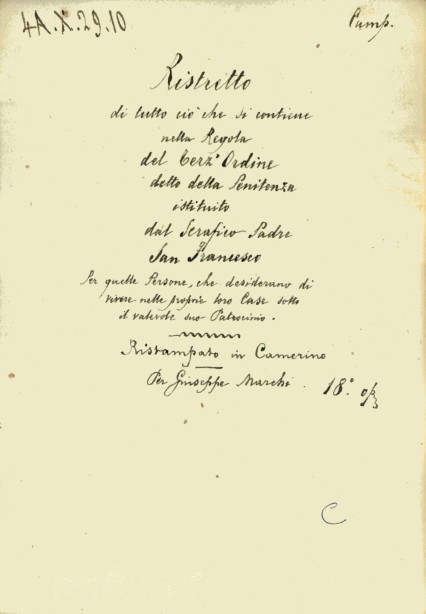 4A.X.29.10
Camp.
Ristretto
di tutto ciò che si contiene
nella Regola
del Terz'Ordine
detto della Penitenza
istituito
dal Serafico Padre
San Francesco
Per quelle Persone, che desiderano di
vivere nelle proprie loro Case sotto
il valevole suo Patrocinio.
Ristampato in Camerino
Per Giuseppe Marchi. 18°.
C